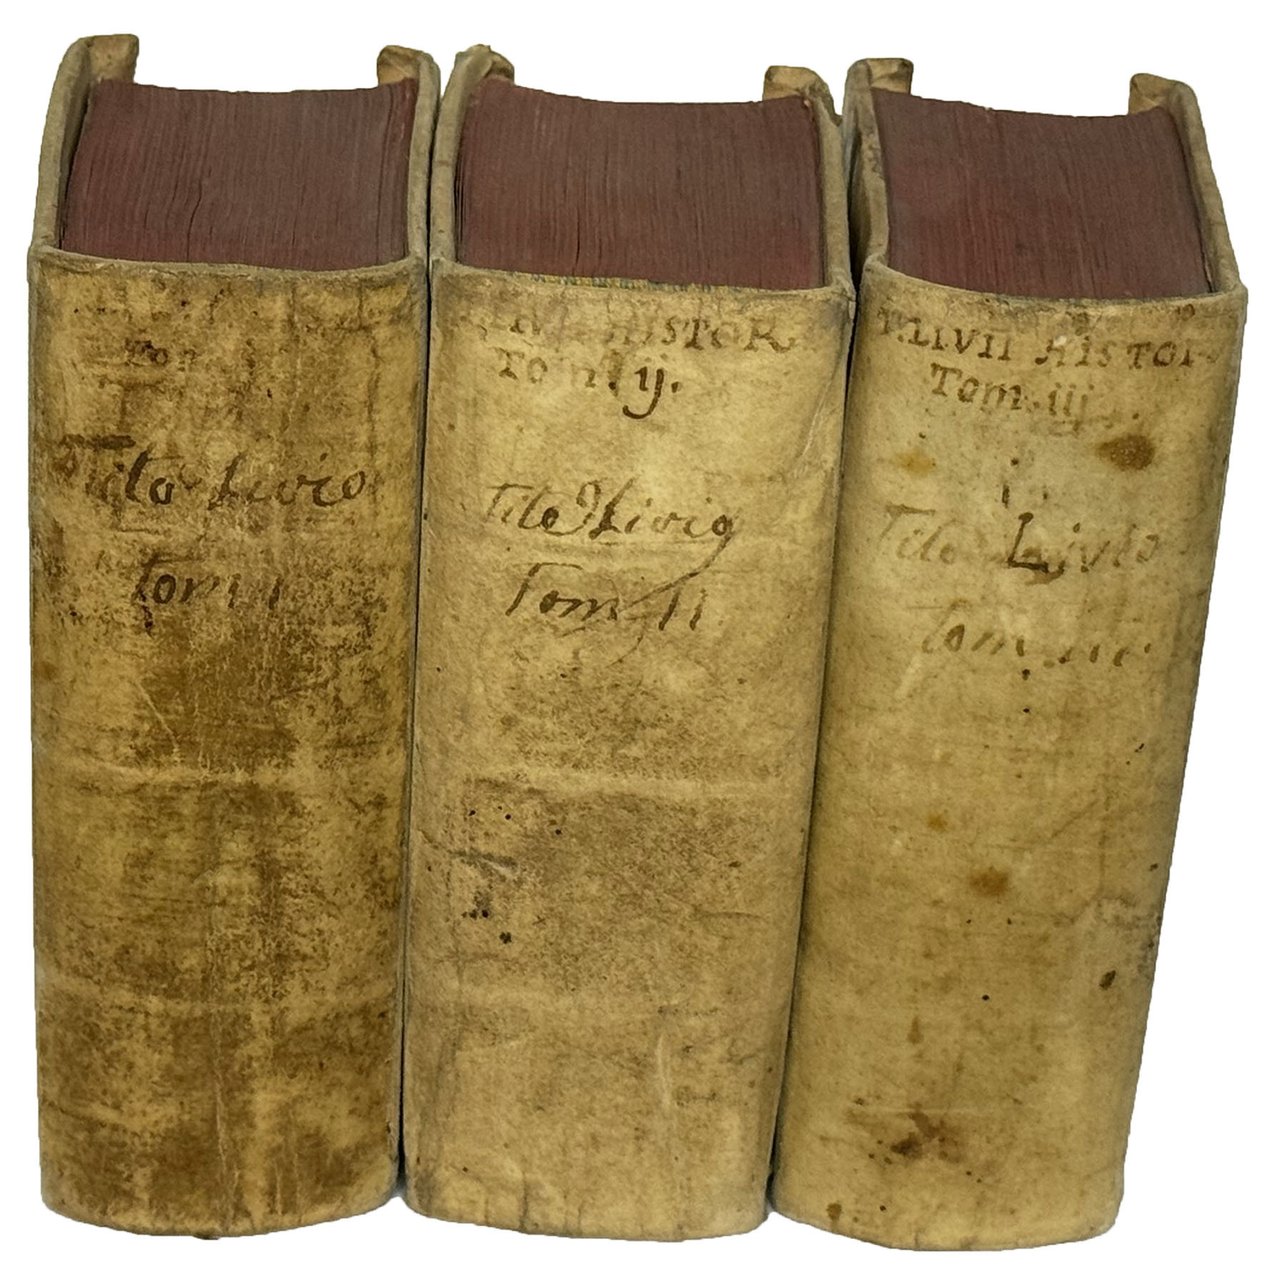 Tom
Tito Livio
tom I
HISTOR
Tom. ij.
Tito Livio
Tom II
T. LIVII HISTOR
Tom. iij
Tito Livio
Tom III